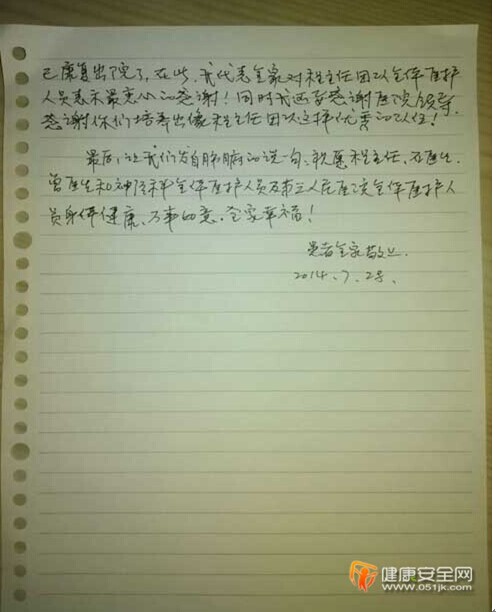 已康复出院了，在此，我代表全家对程主任团队全体医护
人员表示最衷心的感谢！同时我还要感谢医院领导，
感谢你们培养出像程主任团队这样优秀的队伍！
最后，让我们发自肺腑的说一句，祝愿程主任，医生，
曾医生和神经科全体医护人员及市三人民医院全体医护人
员身体健康、万事如意、全家幸福！
患者全家敬上
2014.7.28.
健康安全网
www.051jk.com